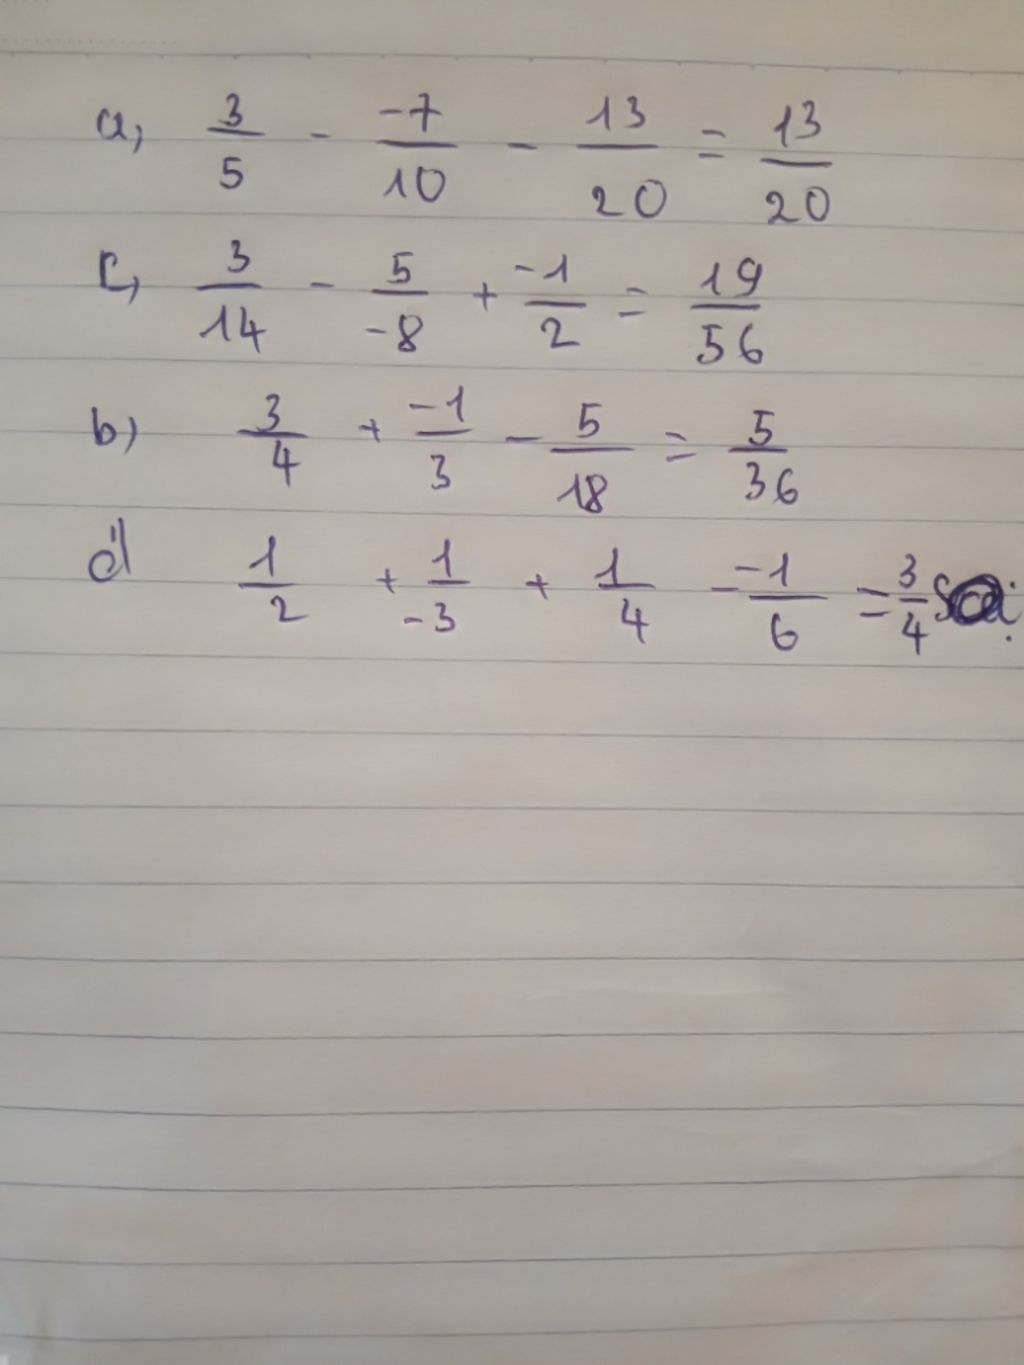 a, 3/5 - -7/10 - 13/20 = 13/20
c, 3/14 - 5/-8 + -1/2 = 19/56
b) 3/4 + -1/3 - 5/18 = 5/36
d 1/2 + 1/-3 + 1/4 - -1/6 = 3/4